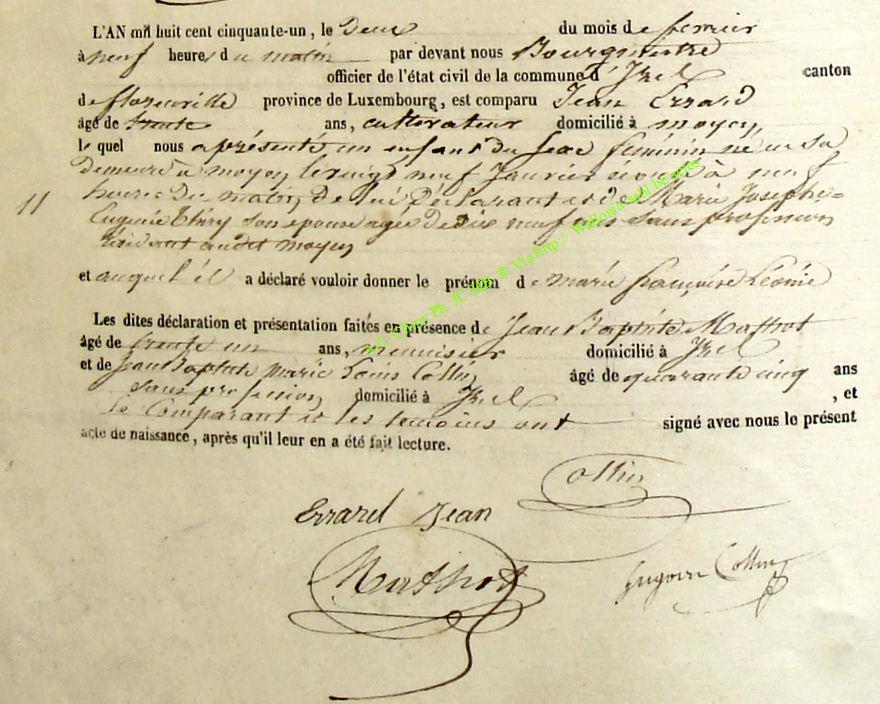 L'AN mil huit cent cinquante-un, le Deux du mois de février
à neuf heure, du matin par devant nous Bourgmestre
officier de l'état civil de la commune d'Izel canton
de florenville province de Luxembourg, est comparu Jean Errard
âgé de trente ans, cultivateur domicilié à moyen,
le quel nous a présenté un enfant du sexe féminin né en sa
demeure à moyen le vingt neuf Janvier à neuf
heures du matin, de lui déclarant et de Marie Josephe
Eugénie Thiry son epouse agée de dix neuf ans sans profession
résidant audit moyen
11
et auquel il a déclaré vouloir donner le prénom de marie françoise Léonie
Les dites déclaration et présentation faites en présence de Jean Baptiste Mathot
âgé de trente un ans, menuisier domicilié à Izel
et de Jean Baptiste marie Louis Collin, âgé de quarante cinq ans
sans profession, domicilié à Izel , et
le Comparant et les temoins ont signé avec nous le présent
acte de naissance, après qu'il leur en a été fait lecture.
Collin
Errard Jean
Mathot
Collin